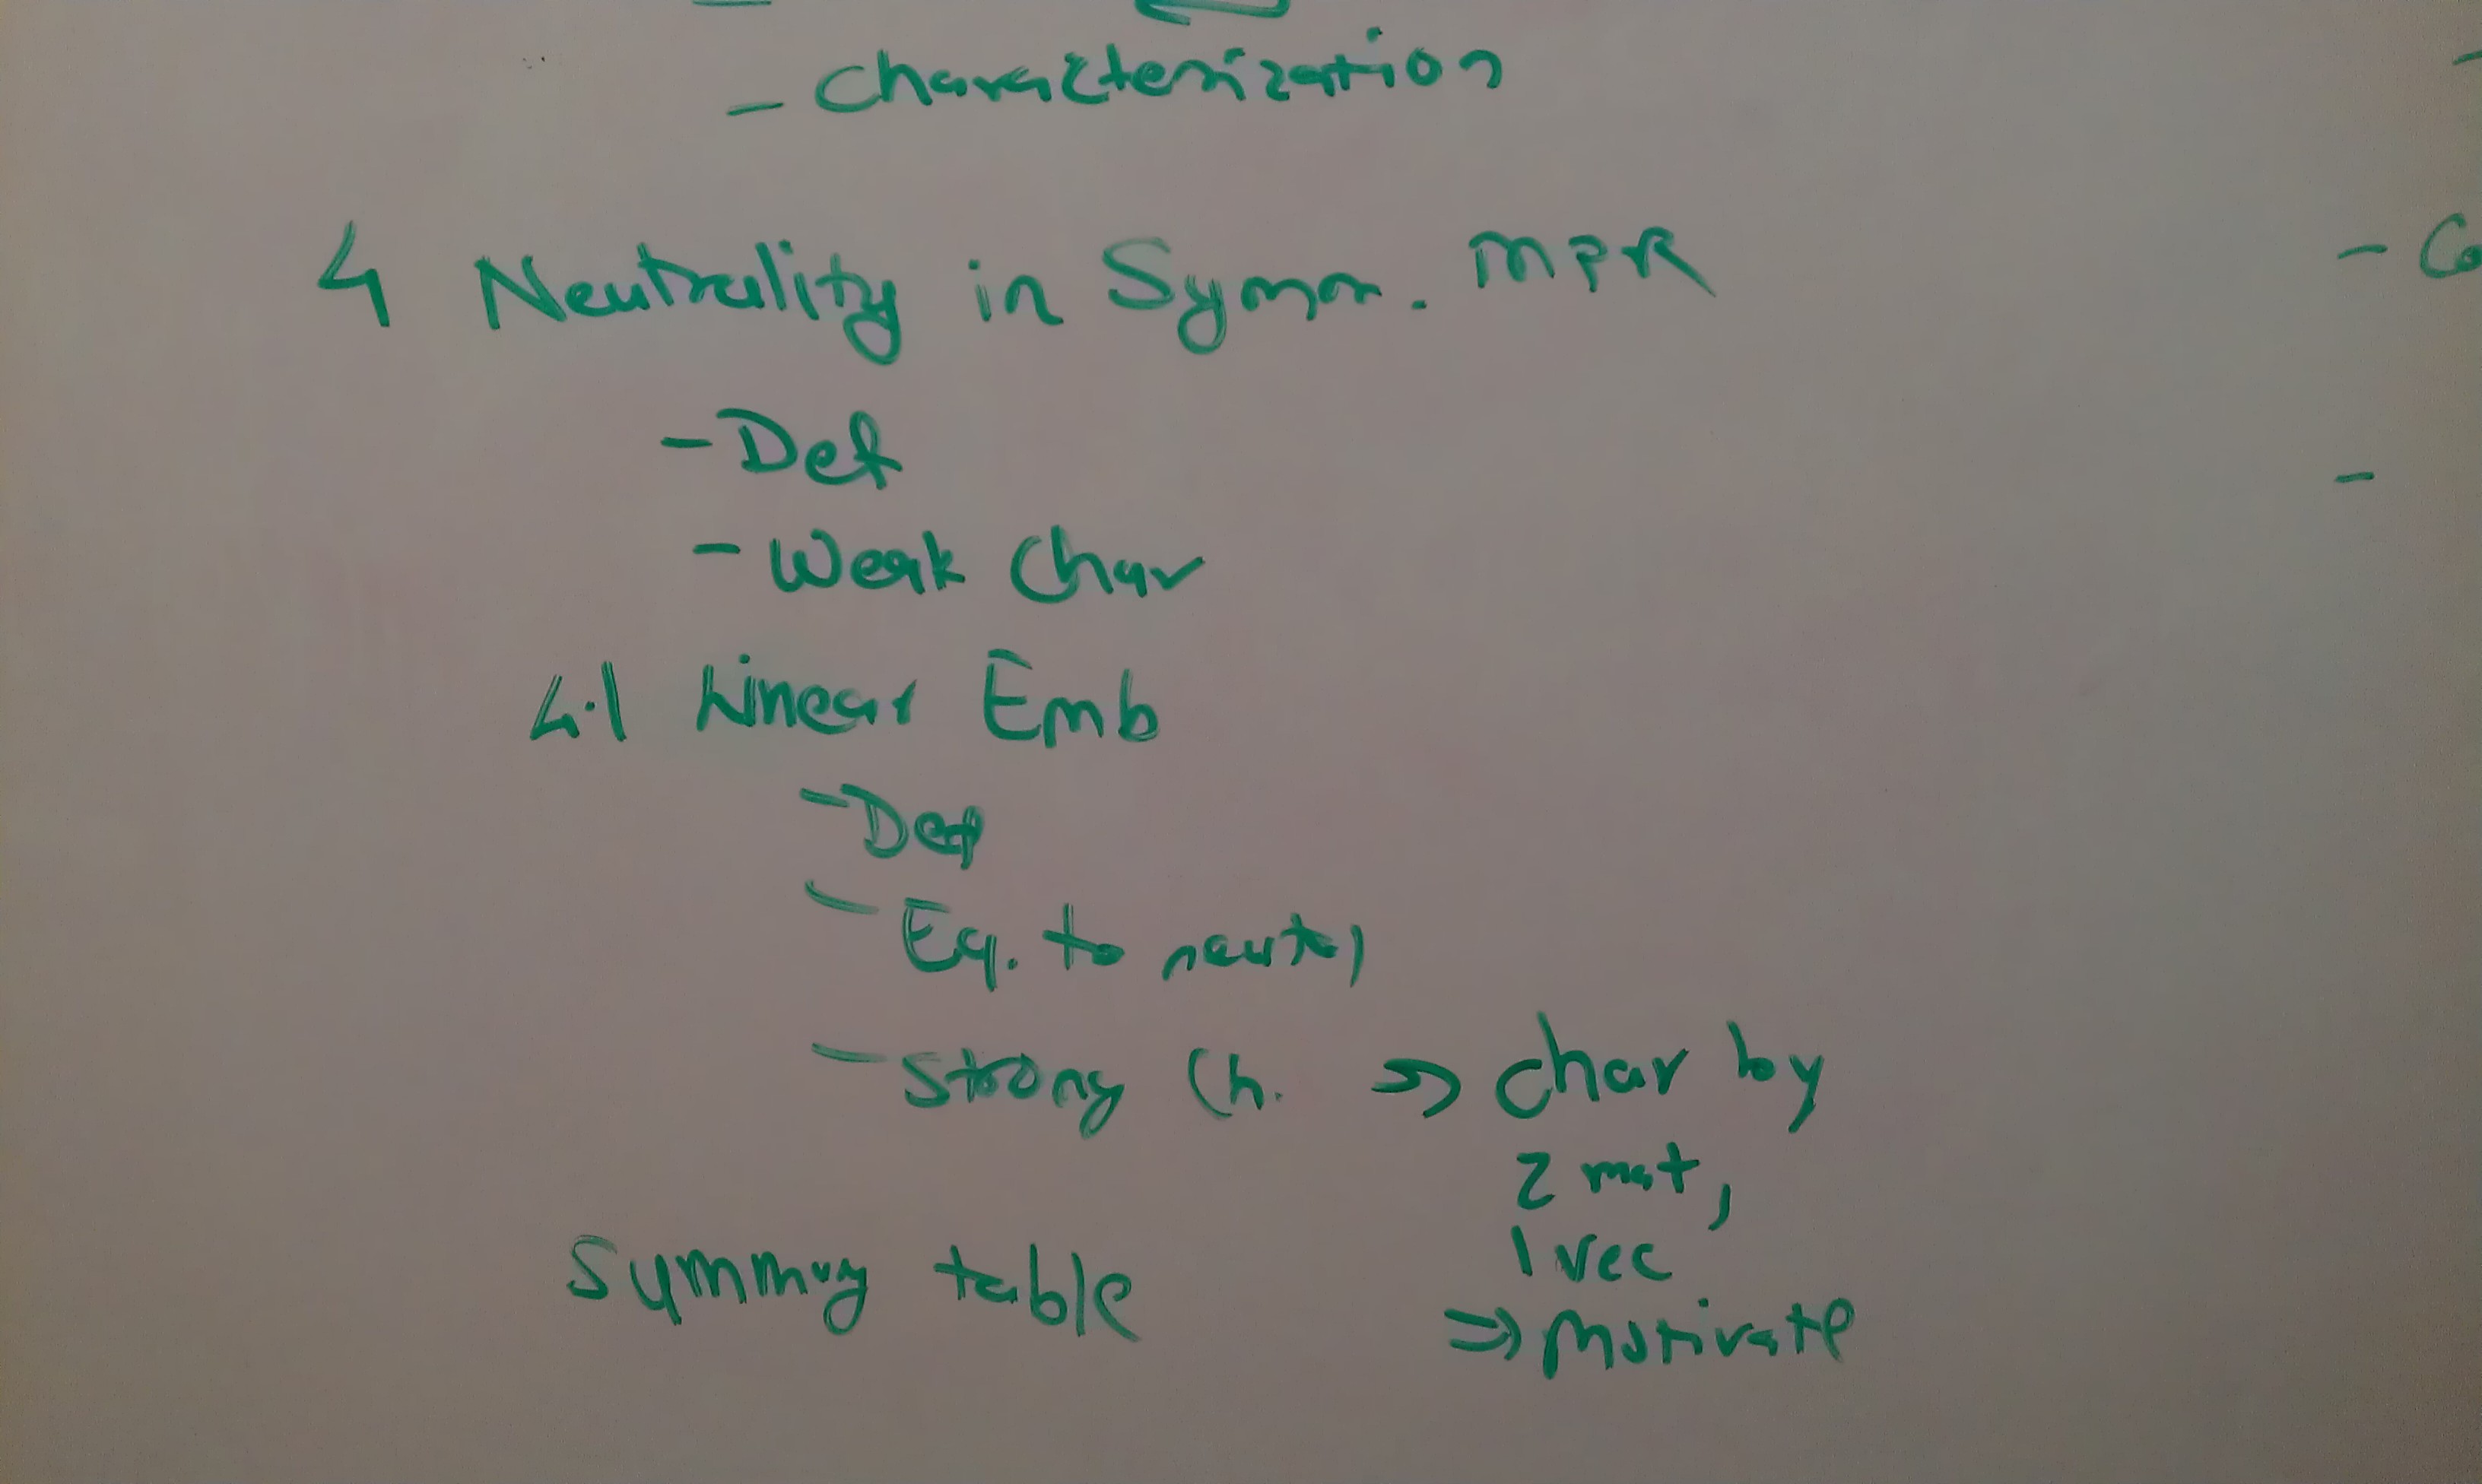 - Characterization
4 Neutrality in Symm. MPR
- Def
- Weak Char
4.1 Linear Emb
- Def
- Eq. to neutral
- Strong Ch. => Char by
2 mat,
1 vec
=> Motivate
Summary table
- Co
-